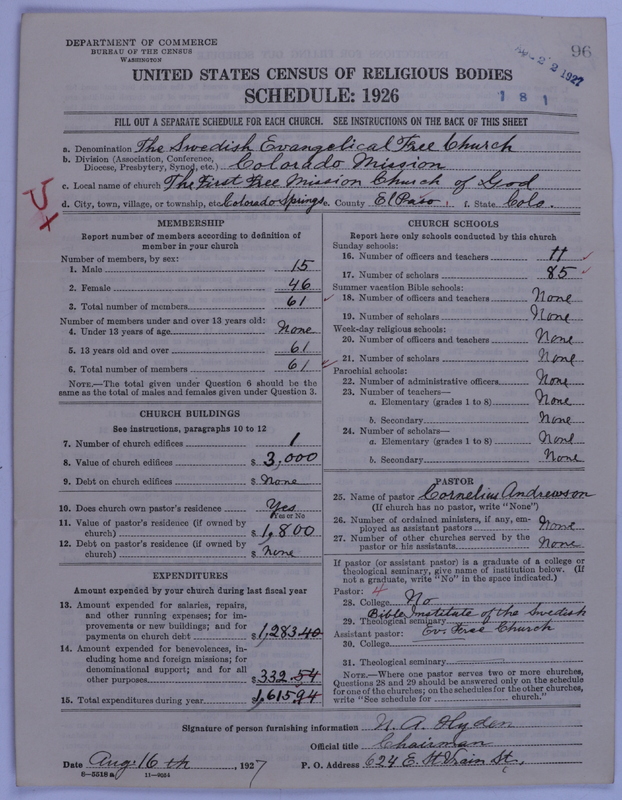 DEPARTMENT OF COMMERCE
BUREAU OF THE CENSUS
WASHINGTON
96
APR 22 1927
181
UNITED STATES CENSUS OF RELIGIOUS BODIES
SCHEDULE: 1926
FILL OUT A SEPARATE SCHEDULE FOR EACH CHURCH. SEE INSTRUCTIONS ON THE BACK OF THIS SHEET
a. Denomination The Swedish Evangelical Free Church
b. Division (Association, Conference, Diocese, Presbytery, Synod, etc.) Colorado Mission
c. Local name of church The First Free Mission Church of God
d. City, town, village, or township, etc Colorado Springs e. County El Paso f. State Colo.
MEMBERSHIP
Report number of members according to definition of
member in your church
Number of members, by sex:
1. Male 15
2. Female 46
3. Total number of members 61
Number of members under and over 13 years old:
4. Under 13 years of age None
5. 13 years old and over 61
6. Total number of members 61
NOTE.—The total given under Question 6 should be the
same as the total of males and females given under Question 3.
CHURCH BUILDINGS
See instructions, paragraphs 10 to 12
7. Number of church edifices 1
8. Value of church edifices $ 3,000
9. Debt on church edifices $ None
10. Does church own pastor's residence Yes
Yes or No
11. Value of pastor's residence (if owned by
church) $ 1,800
12. Debt on pastor's residence (if owned by
church) $ none
EXPENDITURES
Amount expended by your church during last fiscal year
13. Amount expended for salaries, repairs,
and other running expenses; for im-
provements or new buildings; and for
payments on church debt $ 1,283.40
14. Amount expended for benevolences, in-
cluding home and foreign missions; for
denominational support; and for all
other purposes $ 332.54
15. Total expenditures during year 1,615.94
CHURCH SCHOOLS
Report here only schools conducted by this church
Sunday schools:
16. Number of officers and teachers 11
17. Number of scholars 85
Summer vacation Bible schools:
18. Number of officers and teachers None
19. Number of scholars None
Week-day religious schools:
20. Number of officers and teachers None
21. Number of scholars None
Parochial schools:
22. Number of administrative officers None
23. Number of teachers—
a. Elementary (grades 1 to 8) None
b. Secondary None
24. Number of scholars—
a. Elementary (grades 1 to 8) None
b. Secondary None
PASTOR
25. Name of pastor Cornelius Andrewson
(If church has no pastor, write "None")
26. Number of ordained ministers, if any, em-
ployed as assistant pastors None
27. Number of other churches served by the
pastor or his assistants None
If pastor (or assistant pastor) is a graduate of a college or
theological seminary, give name of institution below. (If
not a graduate, write "No" in the space indicated.)
Pastor: 4
28. College No
29. Theological seminary Bible Institute of the Swedish
Assistant pastor: Ev. Free Church
30. College
31. Theological seminary
NOTE.—Where one pastor serves two or more churches,
Questions 28 and 29 should be answered only on the schedule
for one of the churches; on the schedules for the other churches,
write "See schedule for church."
Signature of person furnishing information N. A. Hyden
Official title Chairman
Date Aug. 16th, 1927 P. O. Address 624 E. St Vrain St.
8-5518a 11-9034